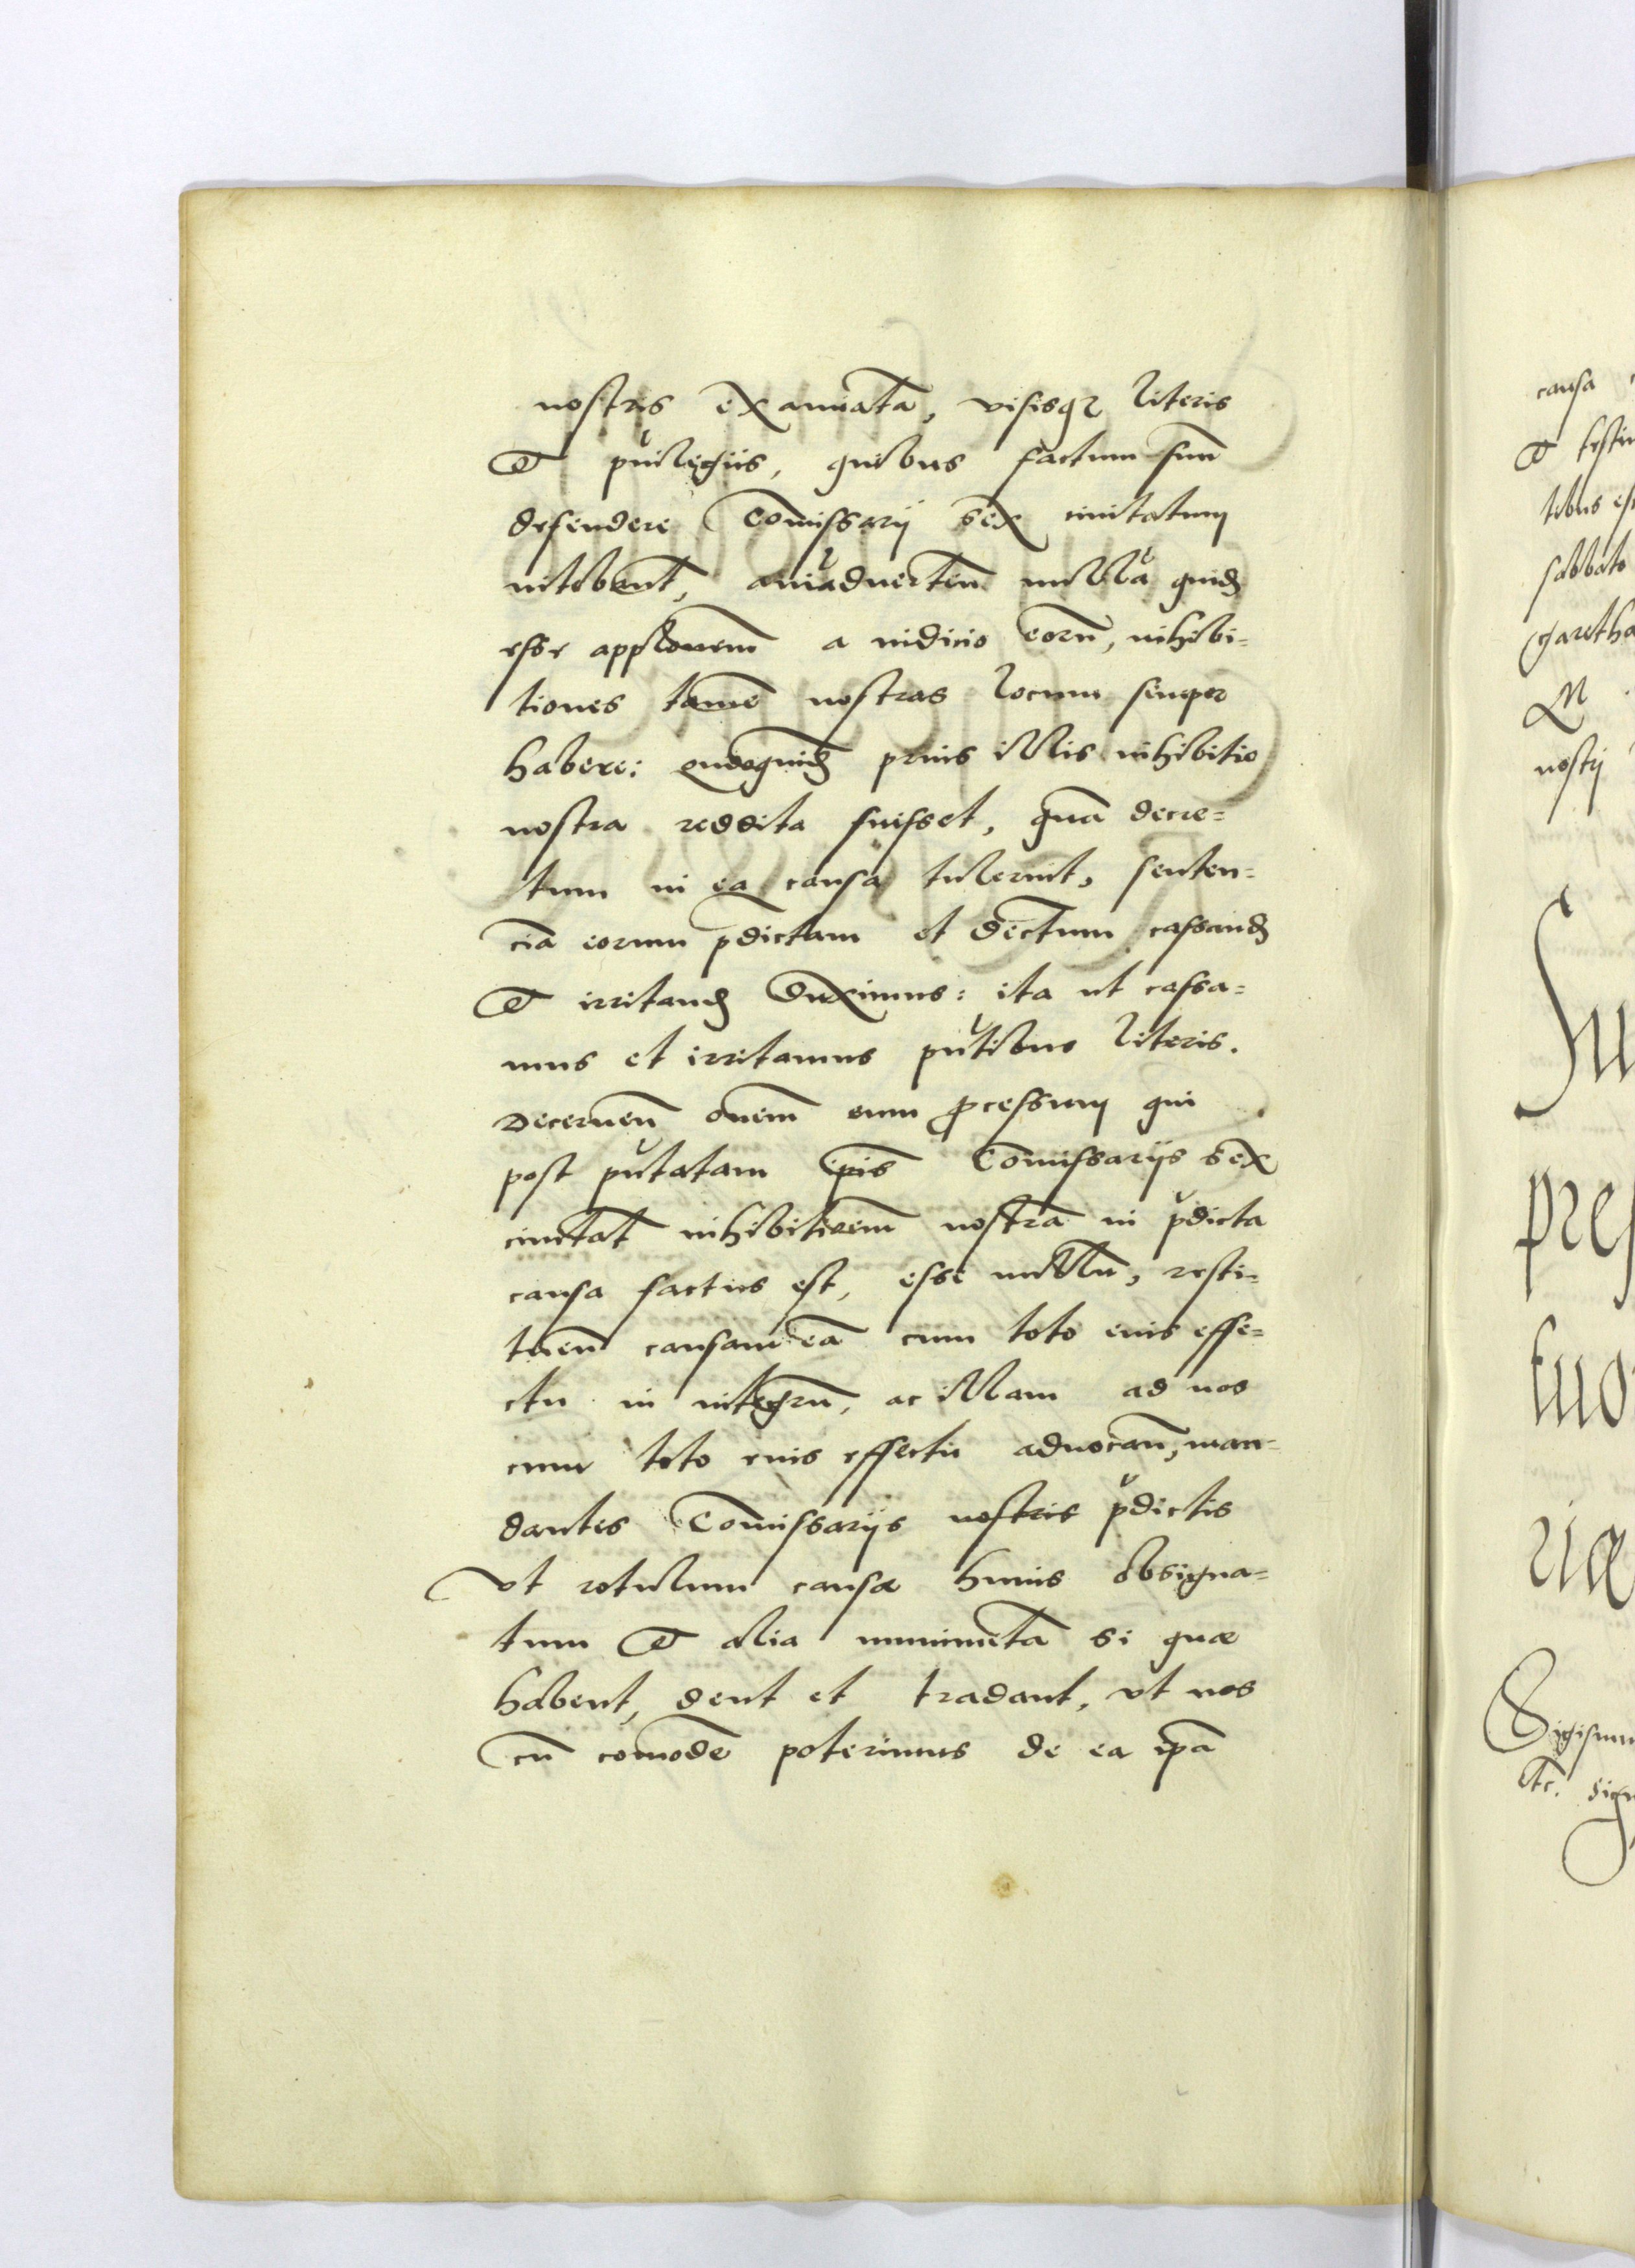 nostris examinata, visisq3 literis
et puilegiis, quibus factum suum
defendere Comissarij sex civitatum
nitebant, aniadverten nulla quid
esse applonem a iudicio eoru, inhibi-
tiones tame nostras locum semper
habere: quadoquid prius illis inhibitio
nostra reddita fuisset, qua decre-
tum in ea causa tulerint, senten-
cia eorum pdictam et dectum cassand
et irritand duximus: ita ut cassa-
mus et irritamus pntibus literis.
Decernen omnem eum processum qui
post pntatam ipis Comissarijs sex
civitat inhibitionem nostra in pdicta
causa factus est, esse nullu, resti-
tuen causam ea cum toto eius effe-
ctu in integru, ac illam ad nos
cum toto eius effectu advocan, man-
dantes Comissarijs nostris pdictis
Ut rotulum causæ huius obsigna-
tum et alia munimeta si quæ
habent, dent et tradant, ut nos
cu comode poterimus de ea ipa
causa
et
sabbato
Sigismun